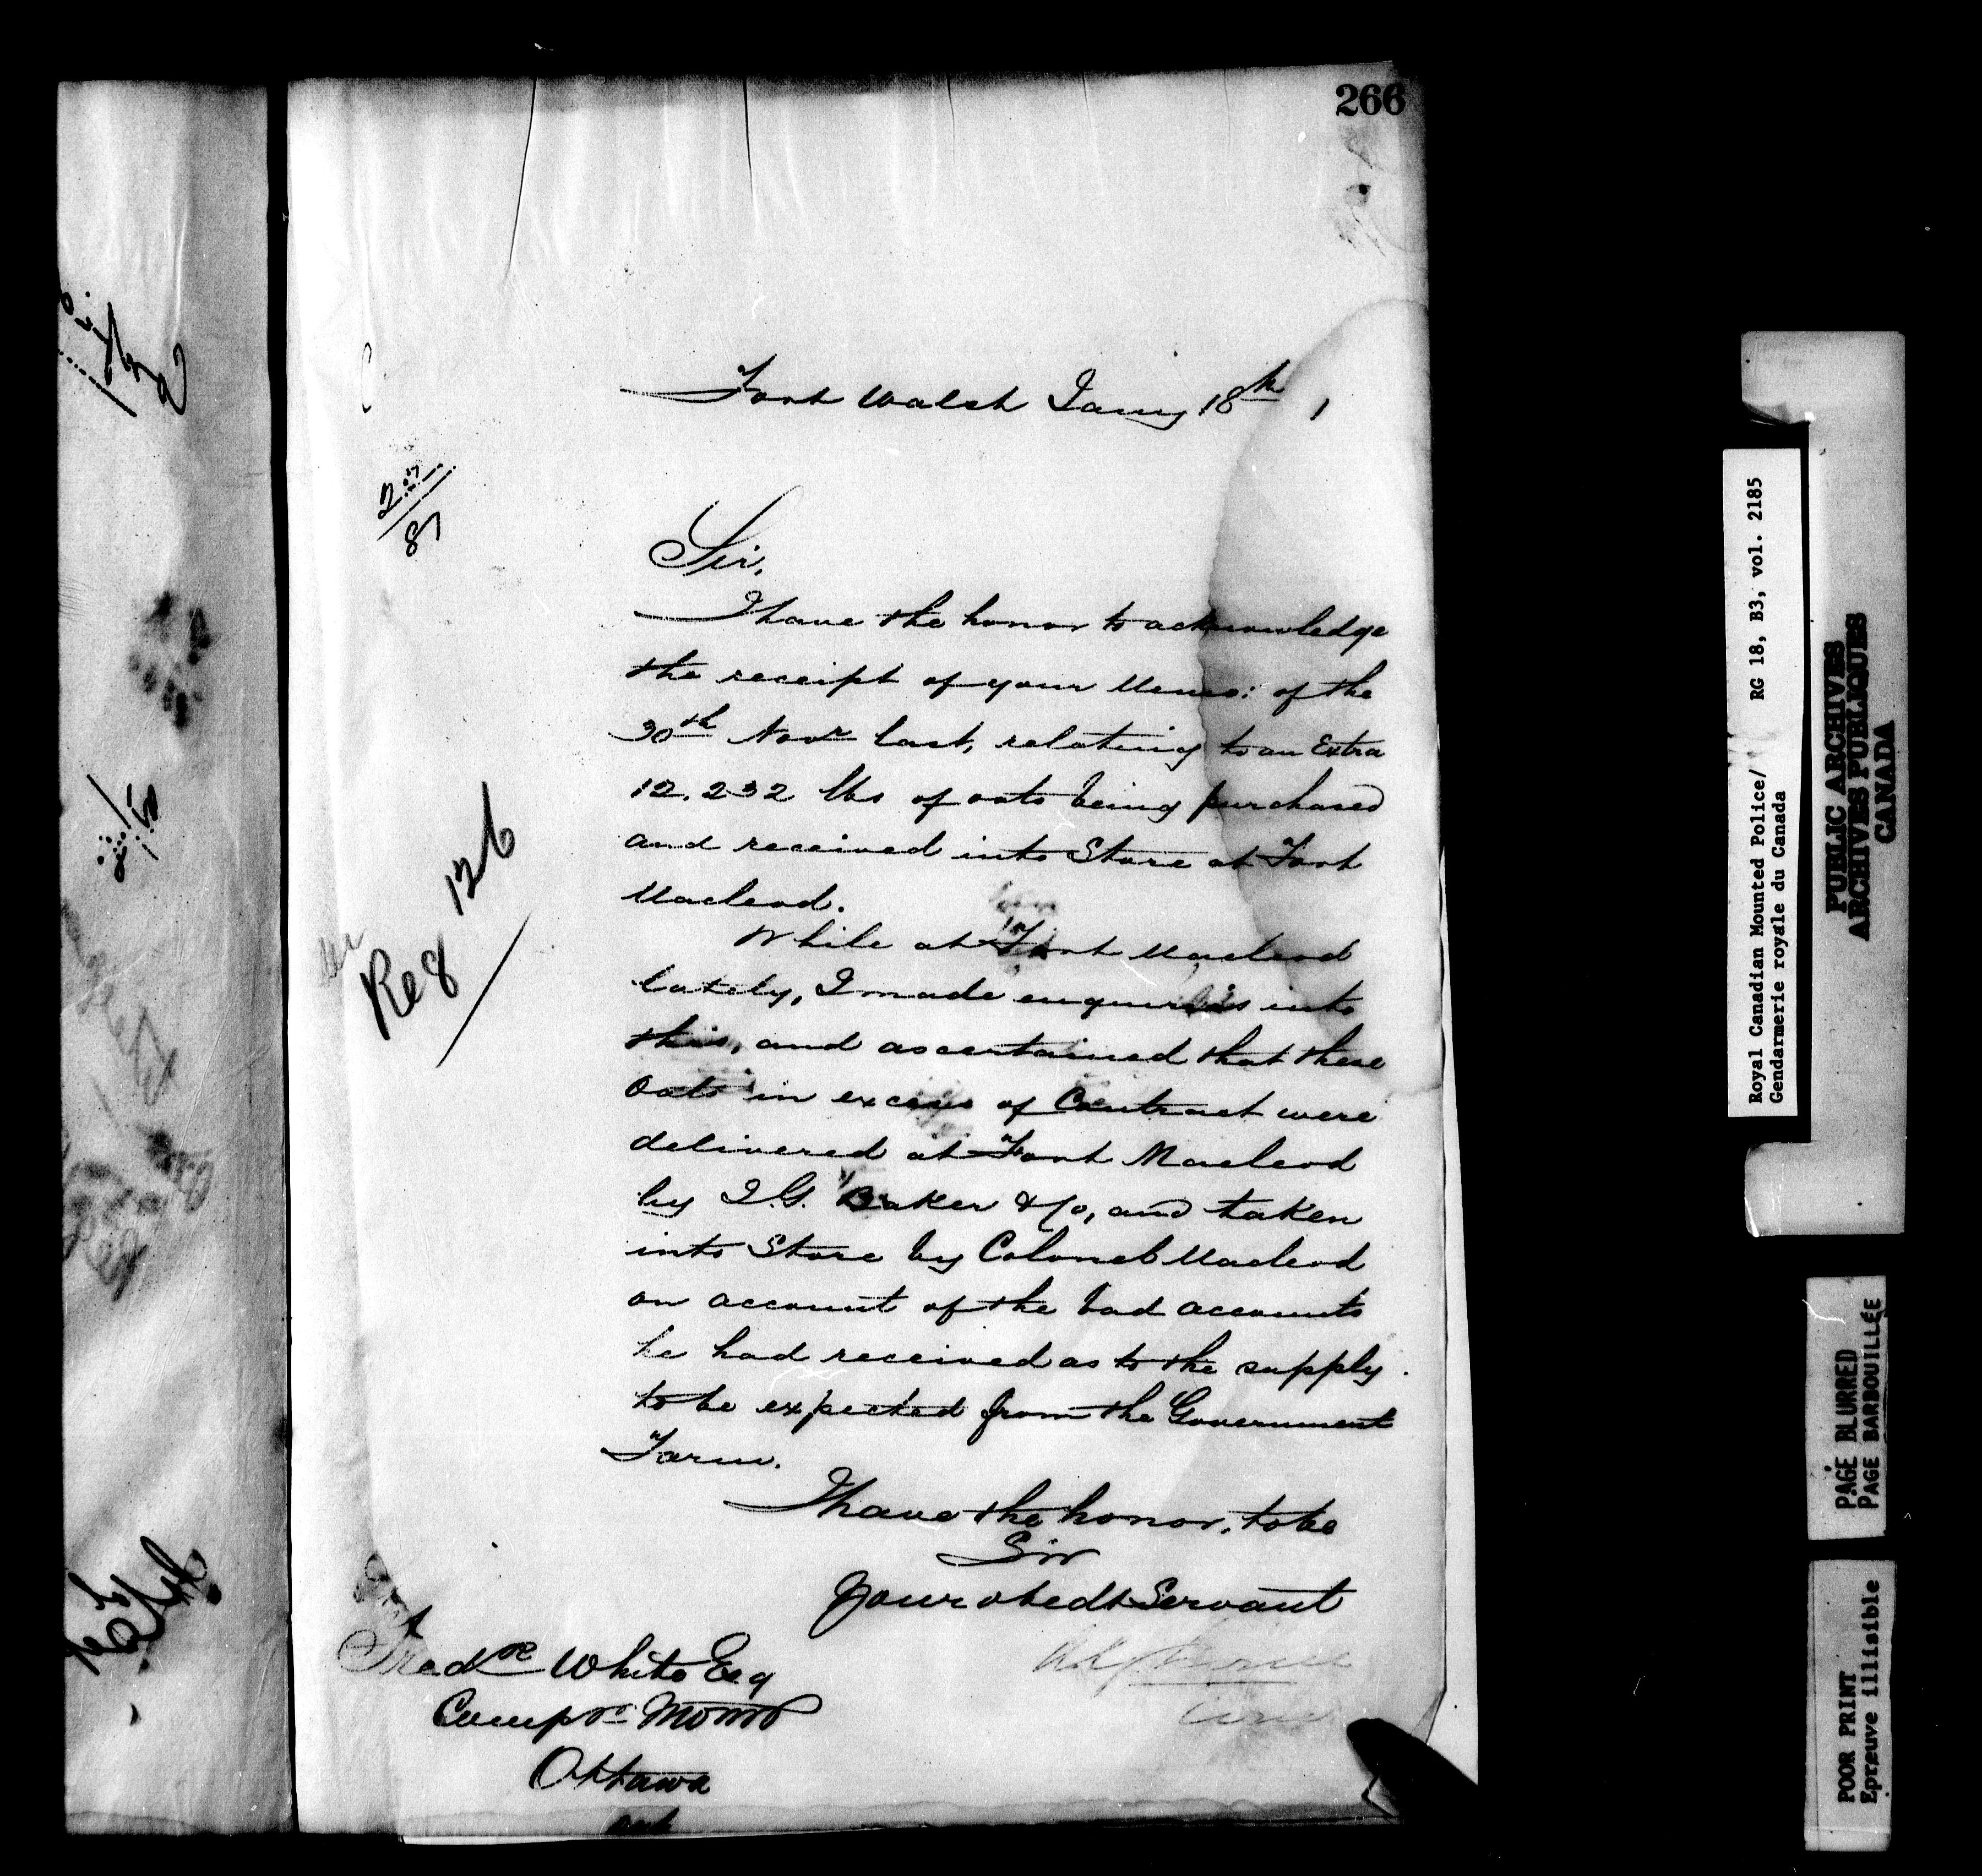 266
Fort Walsh Jany 18th 1
2 03/87
Sir,
I have the honor to acknowledge
the receipt of your Memo: of the
30th Novr last, relating to an Extra
12.232 lbs of oats being purchased
and received into Store at Fort
Macleod.
While at Fort Macleod
lately, I made enquiries into
this, and ascertained that these
Oats in excess of Contract were
delivered at Fort Macleod
by I.G. Baker & Co, and taken
into Store by Colonel Macleod
on account of the bad accounts
he had received as to the supply
to be expected from the Government
Farm.
I have the honor, to be
Sir
Your obedt Servant
Fredk White Esq
Compr
Ottawa
Reg 126
Royal Canadian Mounted Police/ RG 18, B3, vol. 2185
Gendarmerie royale du Canada
PUBLIC ARCHIVES
ARCHIVES PUBLIQUES
CANADA
PAGE BLURRED
PAGE BARBOUILLÉE
POOR PRINT
Epreuve illisible